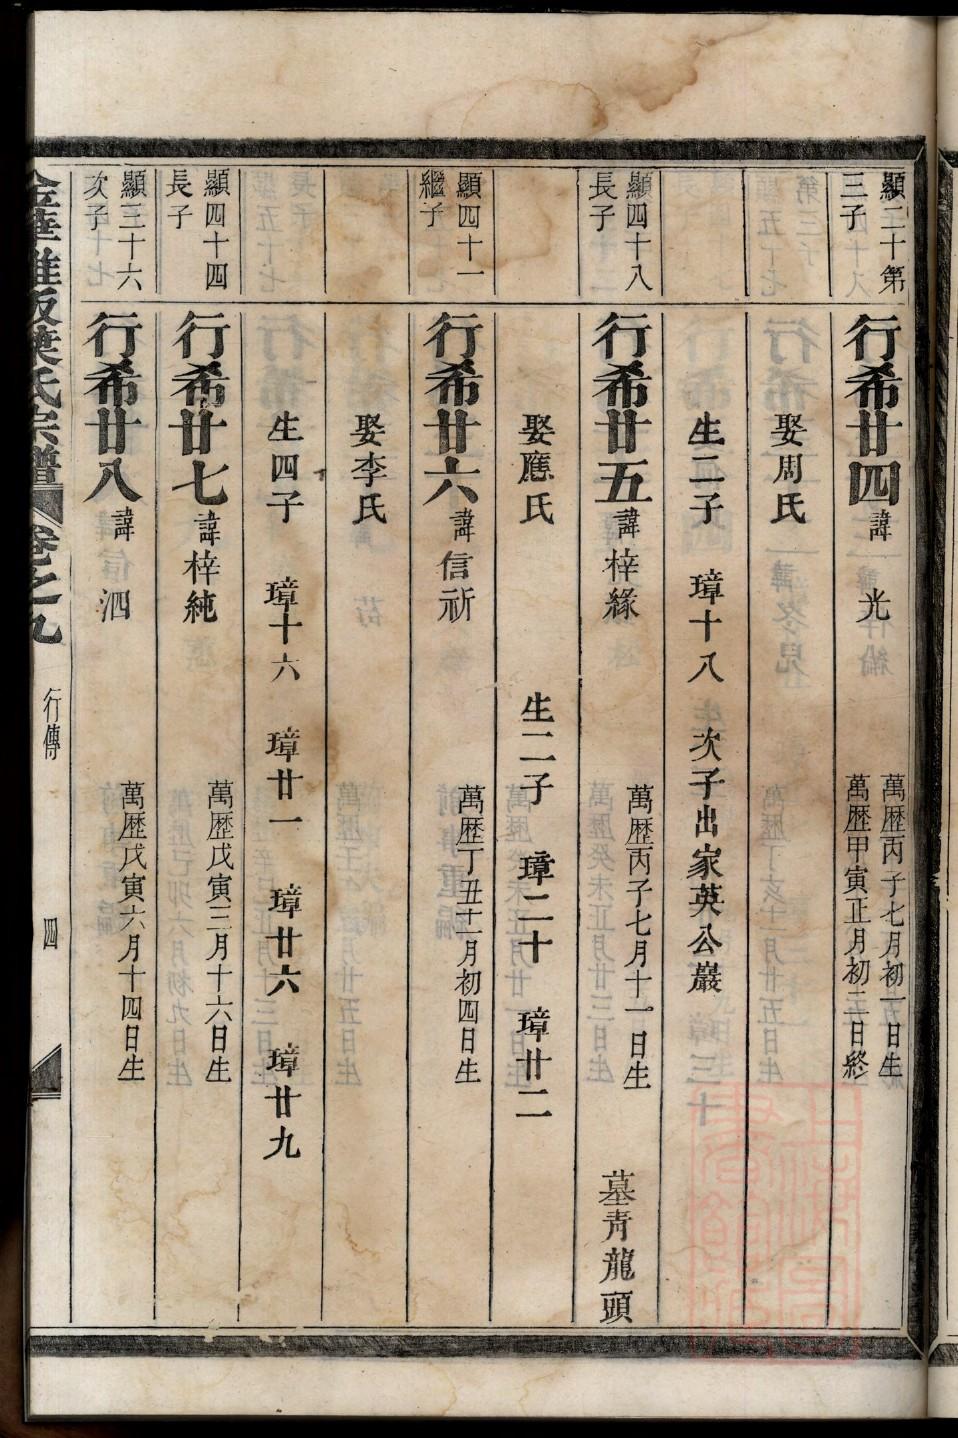 顯二十第
三子
行希廿四 諱光
萬歷丙子七月初一日生
萬歷甲寅正月初三日終
娶周氏
生二子 璋十八 次子出家英公巖
顯四十八
長子
行希廿五 諱梓緣 萬歷丙子七月十一日生 墓青龍頭
娶應氏 生二子 璋二十 璋廿二
顯四十一
繼子
行希廿六 諱信祈 萬歷丁丑十二月初四日生
娶李氏
生四子 璋十六 璋廿一 璋廿六 璋廿九
顯四十四
長子
行希廿七 諱梓純 萬歷戊寅三月十六日生
顯三十六
次子
行希廿八 諱泗 萬歷戊寅六月十四日生
葉氏宗譜 卷之九 行傳 四